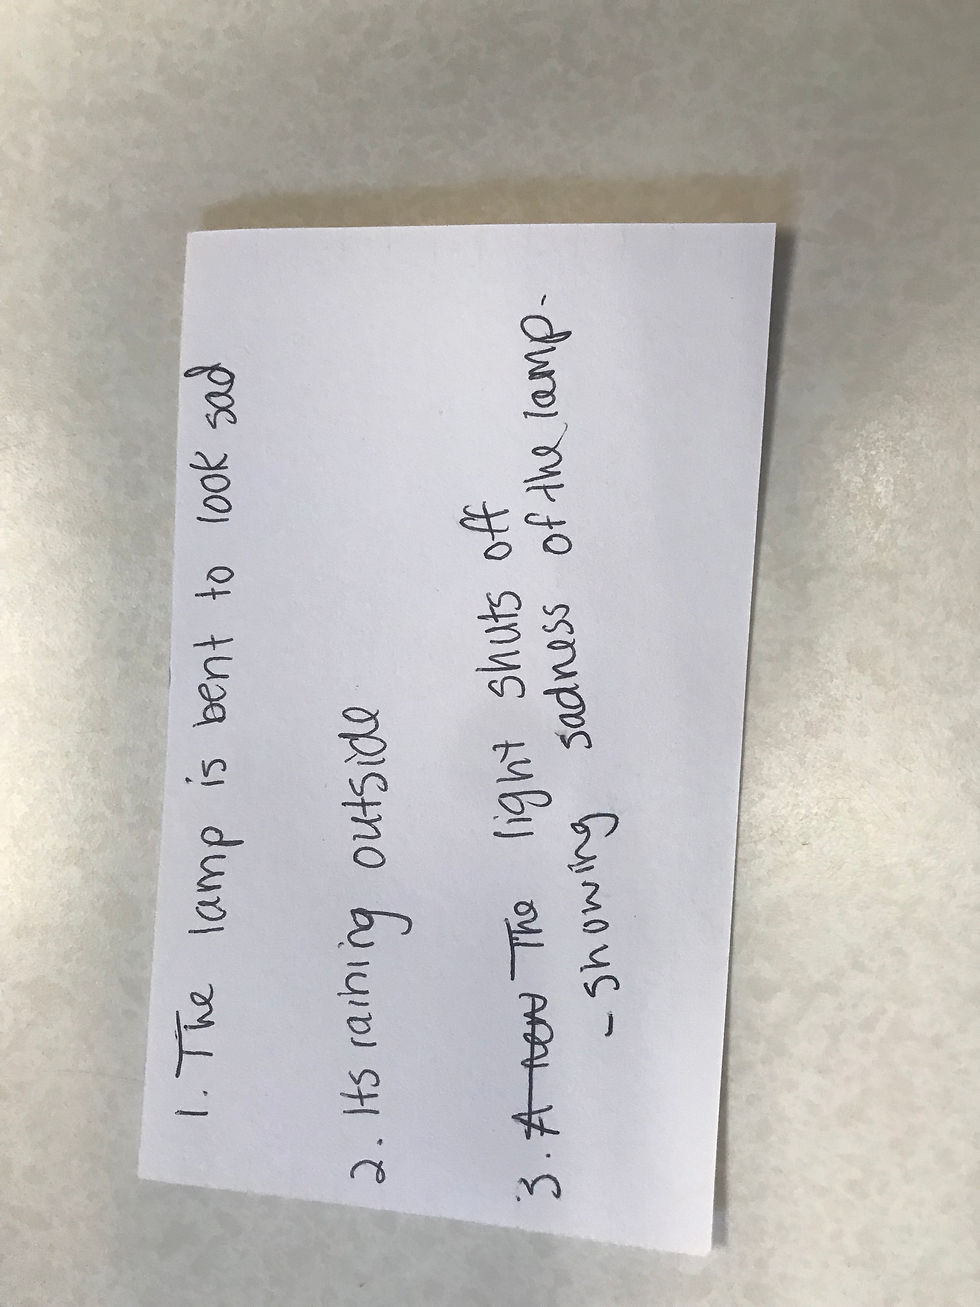 1. The lamp is bent to look sad
2. Its raining outside
3. A new The light shuts off
- showing sadness of the lamp.